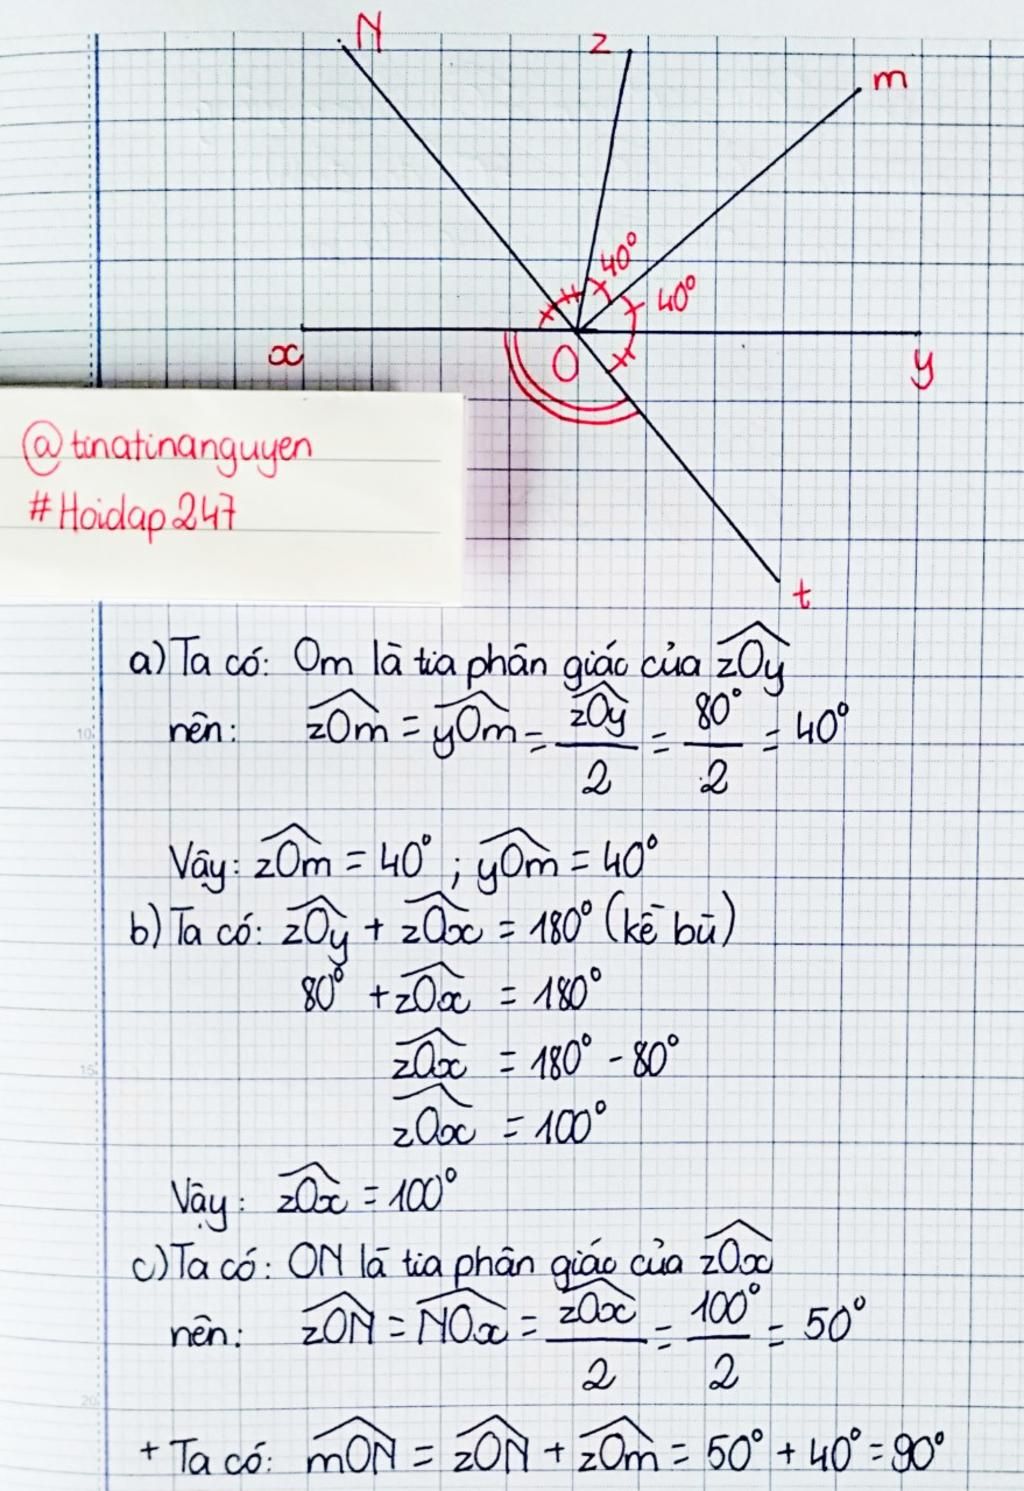 N
z
m
40°
40°
x
O
y
@tinatinanguyen
#Hoidap247
t
a) Ta có: Om là tia phân giác của zOy
nên: zOm = yOm = zOy/2 = 80°/2 = 40°
Vậy: zOm = 40° ; yOm = 40°
b) Ta có: zOy + zOx = 180° (kề bù)
80° + zOx = 180°
zOx = 180° - 80°
zOx = 100°
Vậy: zOx = 100°
c) Ta có: ON là tia phân giác của zOx
nên: zON = NOx = zOx/2 = 100°/2 = 50°
+ Ta có: mON = zON + zOm = 50° + 40° = 90°